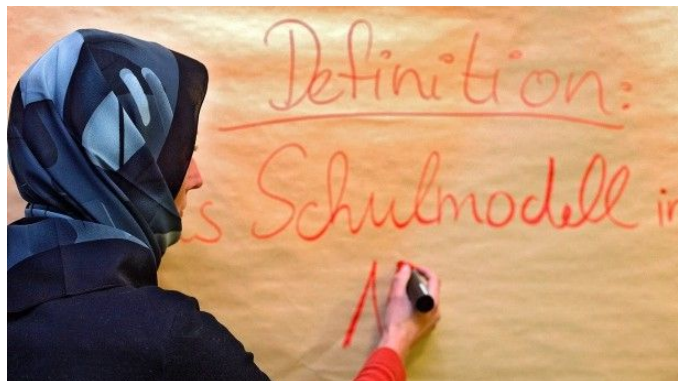 Definition:
s Schulmodell in